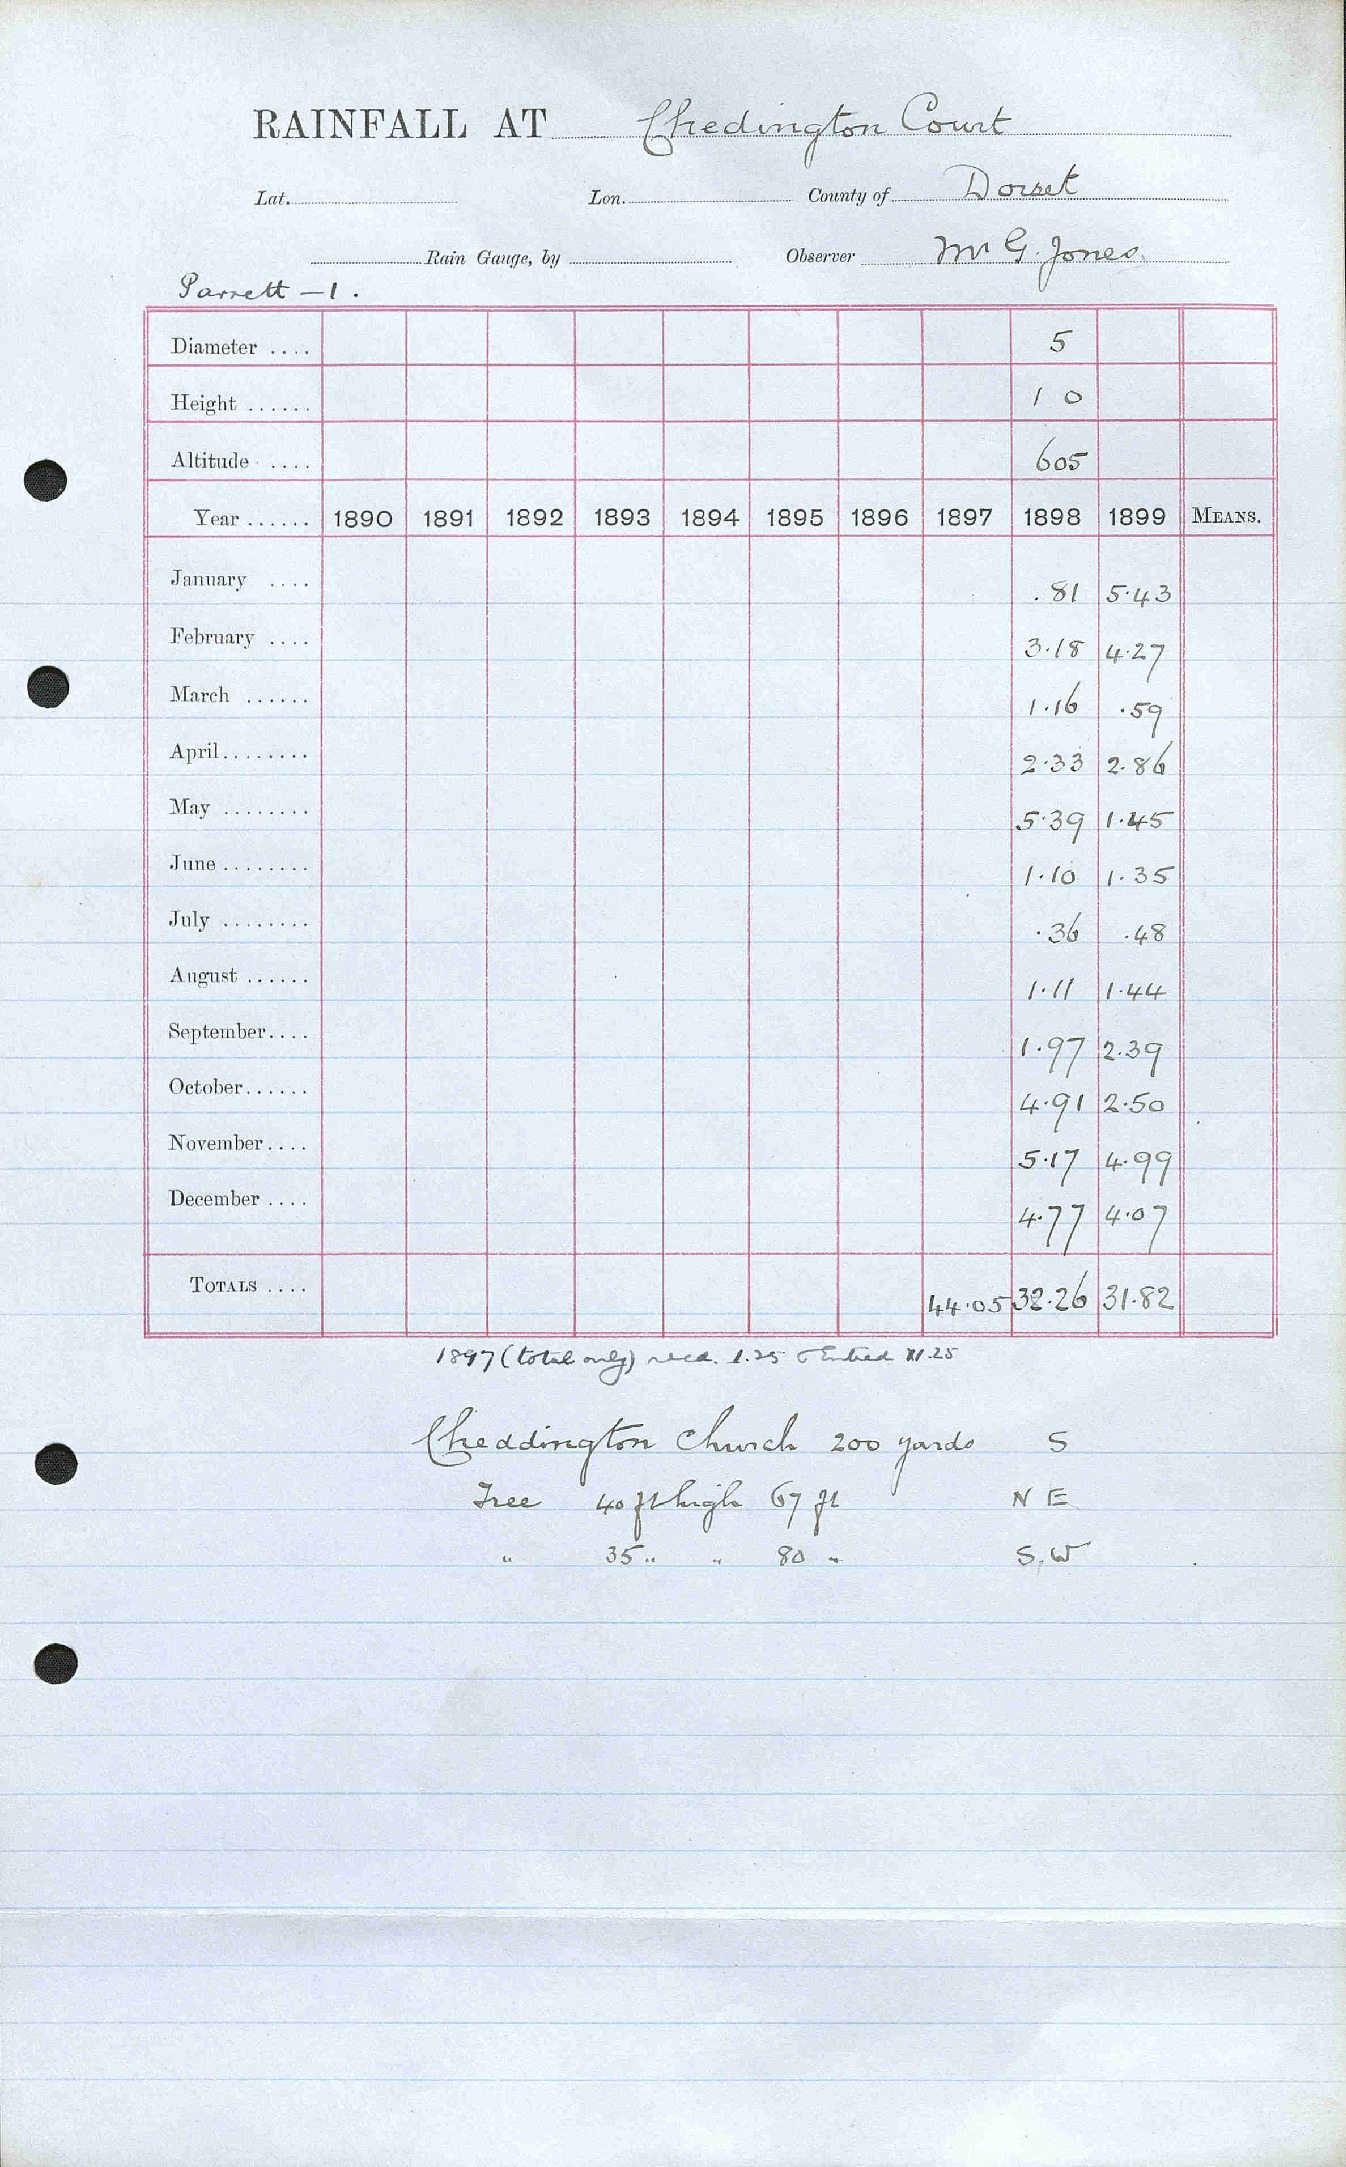 RAINFALL AT Chedington Court
Lat. Lon. County of Dorset
Rain Gauge, by Observer Mr G. Jones.
Parrett — 1 .
Diameter .... 5
Height ...... 1 0
Altitude .... 605
Year ...... 1890 1891 1892 1893 1894 1895 1896 1897 1898 1899 MEANS.
January .... .81 5.43
February .... 3.18 4.27
March ...... 1.16 .59
April ........ 2.33 2.86
May ........ 5.39 1.45
June ........ 1.10 1.35
July ........ .36 .48
August ...... 1.11 1.44
September.... 1.97 2.39
October...... 4.91 2.50
November.... 5.17 4.99
December .... 4.77 4.07
TOTALS .... 44.05 32.26 31.82
1897 (total only) recd. 1.25 Entered 25
Cheddington Church 200 yards S
Tree 40 ft high 67 ft N E
" 35 " " 80 " S.W